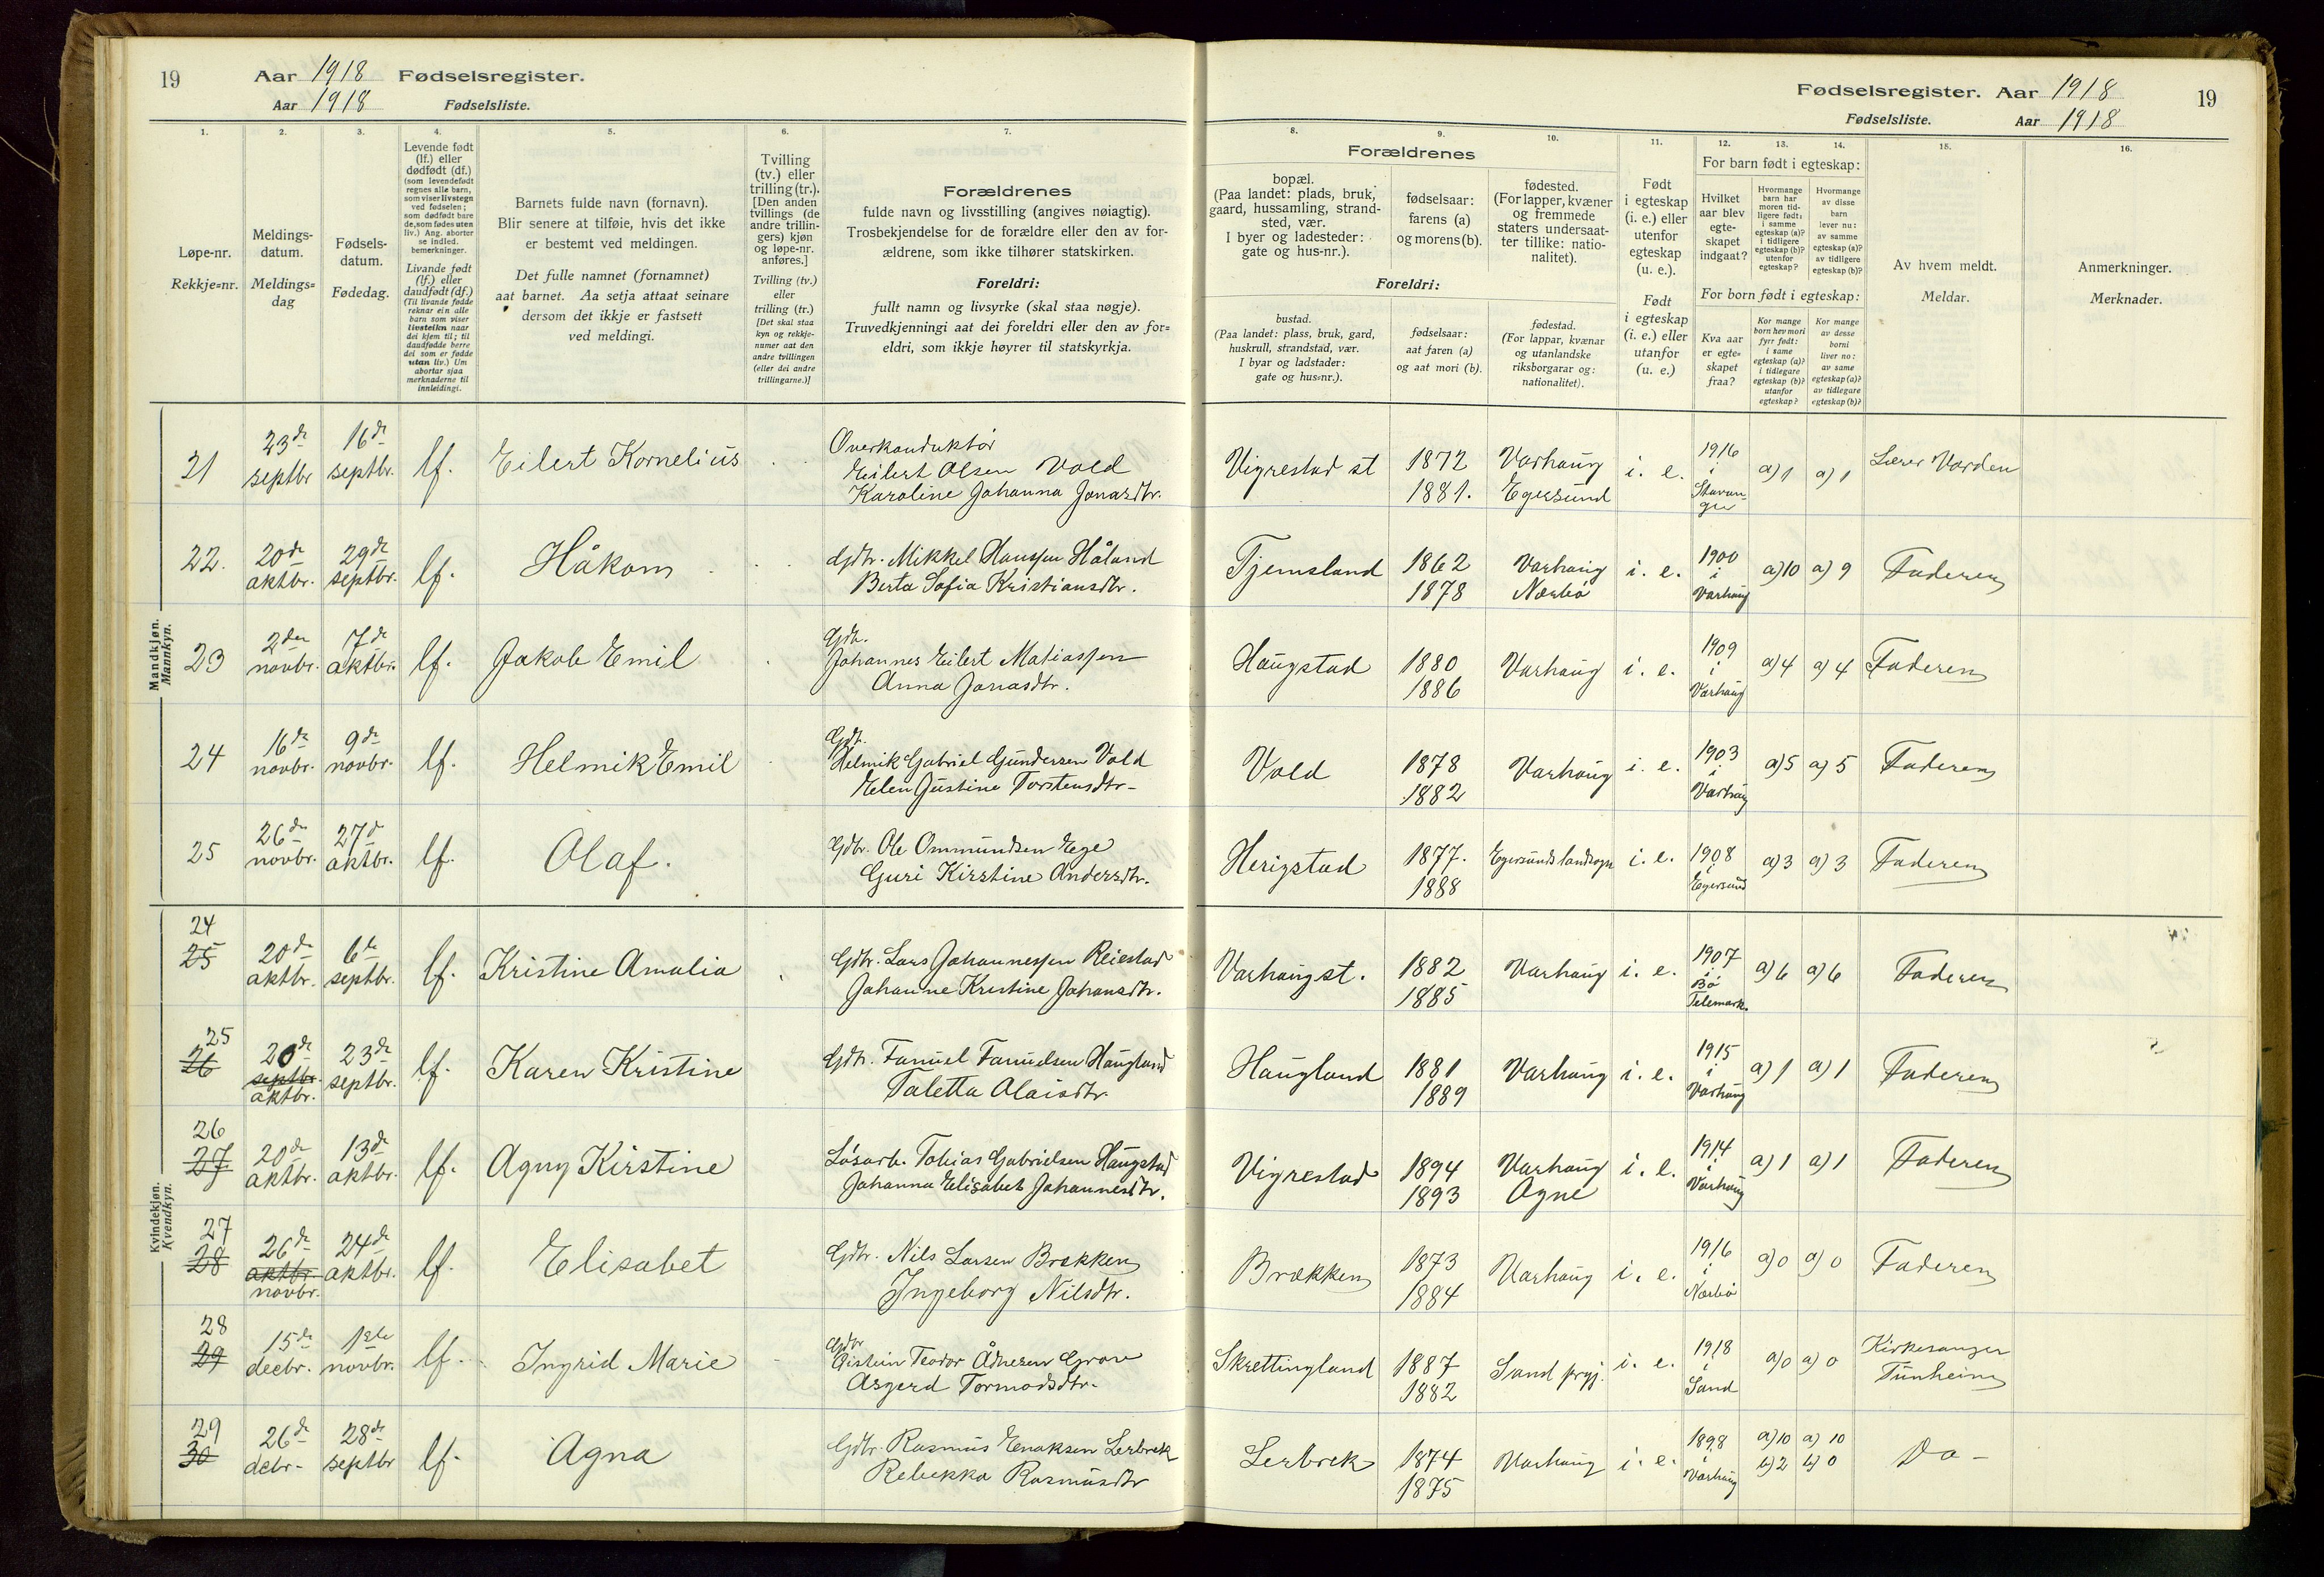 19 Aar 1918 Fødselsregister.
Aar 1918 Fødselsliste.
1. 2. 3. 4. 5. 6. 7.
Løpe-nr.
Rekkje=nr.
Meldings-
datum.
Meldings=
dag
Fødsels-
datum.
Fødedag.
Levende født
(lf.) eller
dødfødt (df.)
(som levendefødt
regnes alle barn,
som viser livstegn
ved fødselen;
som dødfødt bare
de, som fødes uten
liv.) Ang. aborter
se indled.
bemerkninger.
Livande født
(lf.) eller
daudfødt (df.)
(Til livande fødde
reknar ein alle
barn som viser
livsteikn naar
dei kjem til; til
daudfødde berre
dei som er fødde
utan liv.) Um
abortar sjaa
merknaderne til
innleidingi.
Barnets fulde navn (fornavn).
Blir senere at tilføie, hvis det ikke
er bestemt ved meldingen.
Det fulle namnet (fornamnet)
aat barnet. Aa setja attaat seinare
dersom det ikkje er fastsett
ved meldingi.
Tvilling
(tv.) eller
trilling (tr.).
[Den anden
tvillings (de
andre trillin-
gers) kjøn
og løpe-nr.
anføres.]
Tvilling (tv.)
eller
trilling (tr.)
[Det skal staa
kyn og rekkje-
numer aat den
andre tvillingen
(eller dei andre
trillingarne.)]
Forældrenes
fulde navn og livsstilling (angives nøiagtig).
Trosbekjendelse for de forældre eller den av for-
ældrene, som ikke tilhører statskirken.
Foreldri:
fullt namn og livsyrke (skal staa nøgje).
Truvedkjenningi aat dei foreldri eller den av for=
eldri, som ikkje høyrer til statskyrkja.
Fødselsregister. Aar 1918 19
Fødselsliste. Aar 1918
8. 9. 10. 11. 12. 13. 14. 15. 16.
Forældrenes
bopæl.
(Paa landet: plads, bruk,
gaard, hussamling, strand-
sted, vær.
I byer og ladesteder:
gate og hus-nr.).
fødselsaar:
farens (a)
og morens (b).
fødested.
(For lapper, kvæner
og fremmede
staters undersaat-
ter tillike: natio-
nalitet).
Foreldri:
bustad.
(Paa landet: plass, bruk, gard,
huskrull, strandstad, vær.
I byar og ladstader:
gate og hus=nr.).
fødselsaar:
aat faren (a)
og aat mori (b).
fødestad.
(For lappar, kvænar
og utanlandske
riksborgarar og:
nationalitet).
Født
i egteskap
(i. e.) eller
utenfor
egteskap
(u. e.).
Født
i egteskap
(i. e.) eller
utanfor
(u. e.)
For barn født i egteskap:
Hvilket
aar blev
egte-
skapet
indgaat?
Hvormange
barn har
moren tid-
ligere født:
i samme
egteskap (a)?
i tidligere
egteskap (b)?
utenfor
egteskap?
Hvormange
av disse
barn
lever nu:
av samme
egteskap (a)?
av tidligere
egteskap (b)?
For born født i egteskap:
Kva aar
er egte=
skapet
fraa?
Kor mange
born hev mori
fyrr født:
i same
egteskap (a)?
i tidlegare
egteskap (b)?
utanfor
egteskap?
Kor mange
av desse
borni
liver no:
av same
egteskap (a)?
av tidlegare
egteskap (b)?
Av hvem meldt.
Meldar.
Anmerkninger.
Merknader.
Mandkjøn.
Mannkyn.
21 23de septbr 16de septbr. lf. Eilert Kornelius Overkonduktör Eilert Olsen Vold Karoline Johanna Jonasdtr. Vigrestad st 1872 1881. Varhaug Egersund i. e. 1916 i Stavanger a) 1 a) 1 Lærer Varden
22. 20de oktbr. 29de septbr. lf. Håkom Gdbr. Mikkel Hanssen Håland Berta Sofia Kristiansdtr. Tjemsland 1862 1878 Varhaug Nærbö i. e. 1900 i Varhaug a) 10 a) 9 Faderen
23 2den novbr. 7de oktbr. lf. Jakob Emil Gdbr. Johannes Eilert Matiassen Anna Jonasdtr. Haugstad 1880 1886 Varhaug i. e. 1909 i Varhaug a) 4 a) 4 Faderen
24 16de novbr. 9de novbr. lf. Helmik Emil Gdbr. Helmik Gabriel Gundersen Vold Helen Gustine Torstensdtr. Vold 1878 1882 Varhaug i. e. 1903 i Varhaug a) 5 a) 5 Faderen
25 26de novbr. 27de oktbr. lf. Olaf. Gdbr. Ole Ommundsen Ege Guri Kirstine Andersdtr. Herigstad 1877. 1888 Egersunds landsogn i. e. 1908 i Egersund a) 3 a) 3 Faderen
Kvindekjøn.
Kvendkyn.
24 25 20de oktbr. 6te septbr. lf. Kristine Amalia Gdbr. Lars Johannessen Reiestad Johanne Kristine Johansdtr. Varhaug st. 1882 1885 Varhaug i. e. 1907 i Bö Telemark. a) 6 a) 6 Faderen
25 26 20de septbr. oktbr. 23de septbr. lf. Karen Kristine Gdbr. Fanuel Fanuelsen Haugland Taletta Olaisdtr. Haugland 1881 1889 Varhaug i. e. 1915 i Varhaug a) 1 a) 1 Faderen
26 27 20de oktbr. 13de oktbr. lf. Agny Kirstine Lösarb. Tobias Gabrielsen Haugstad Johanna Elisabet Johannesdtr. Vigrestad 1894 1893 Varhaug Ogne i. e. 1914 i Varhaug a) 1 a) 1 Faderen
27 28 26de oktbr. novbr. 24de oktbr. lf. Elisabet Gdbr. Nils Larsen Brækken Ingeborg Nilsdtr. Brækken 1873 1884 Varhaug i. e. 1916 i Nærbö a) 0 a) 0 Faderen
28 29 15de decbr. 1ste novbr. lf. Ingrid Marie Gdbr Öistein Teodor Ådnesen Grove Asgerd Tormodsdtr. Skrettingland 1887 1882 Sand prgj. i. e. 1918 i Sand a) 0 a) 0 Kirkesanger Tunheim
29 30 26de debr. 28de septbr lf. Agna Gdbr. Rasmus Enoksen Lerbrek Rebekka Rasmusdtr Lerbrek 1874 1875 Varhaug i. e. 1898 i Varhaug a) 10 b) 2 a) 10 b) 0 Do -